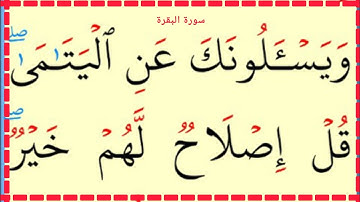 سورة البقرة
وَيَسْـَٔلُونَكَ عَنِ ٱلْيَتَـٰمَىٰ ۖ
قُلْ إِصْلَاحٌ لَّهُمْ خَيْرٌ ۖ